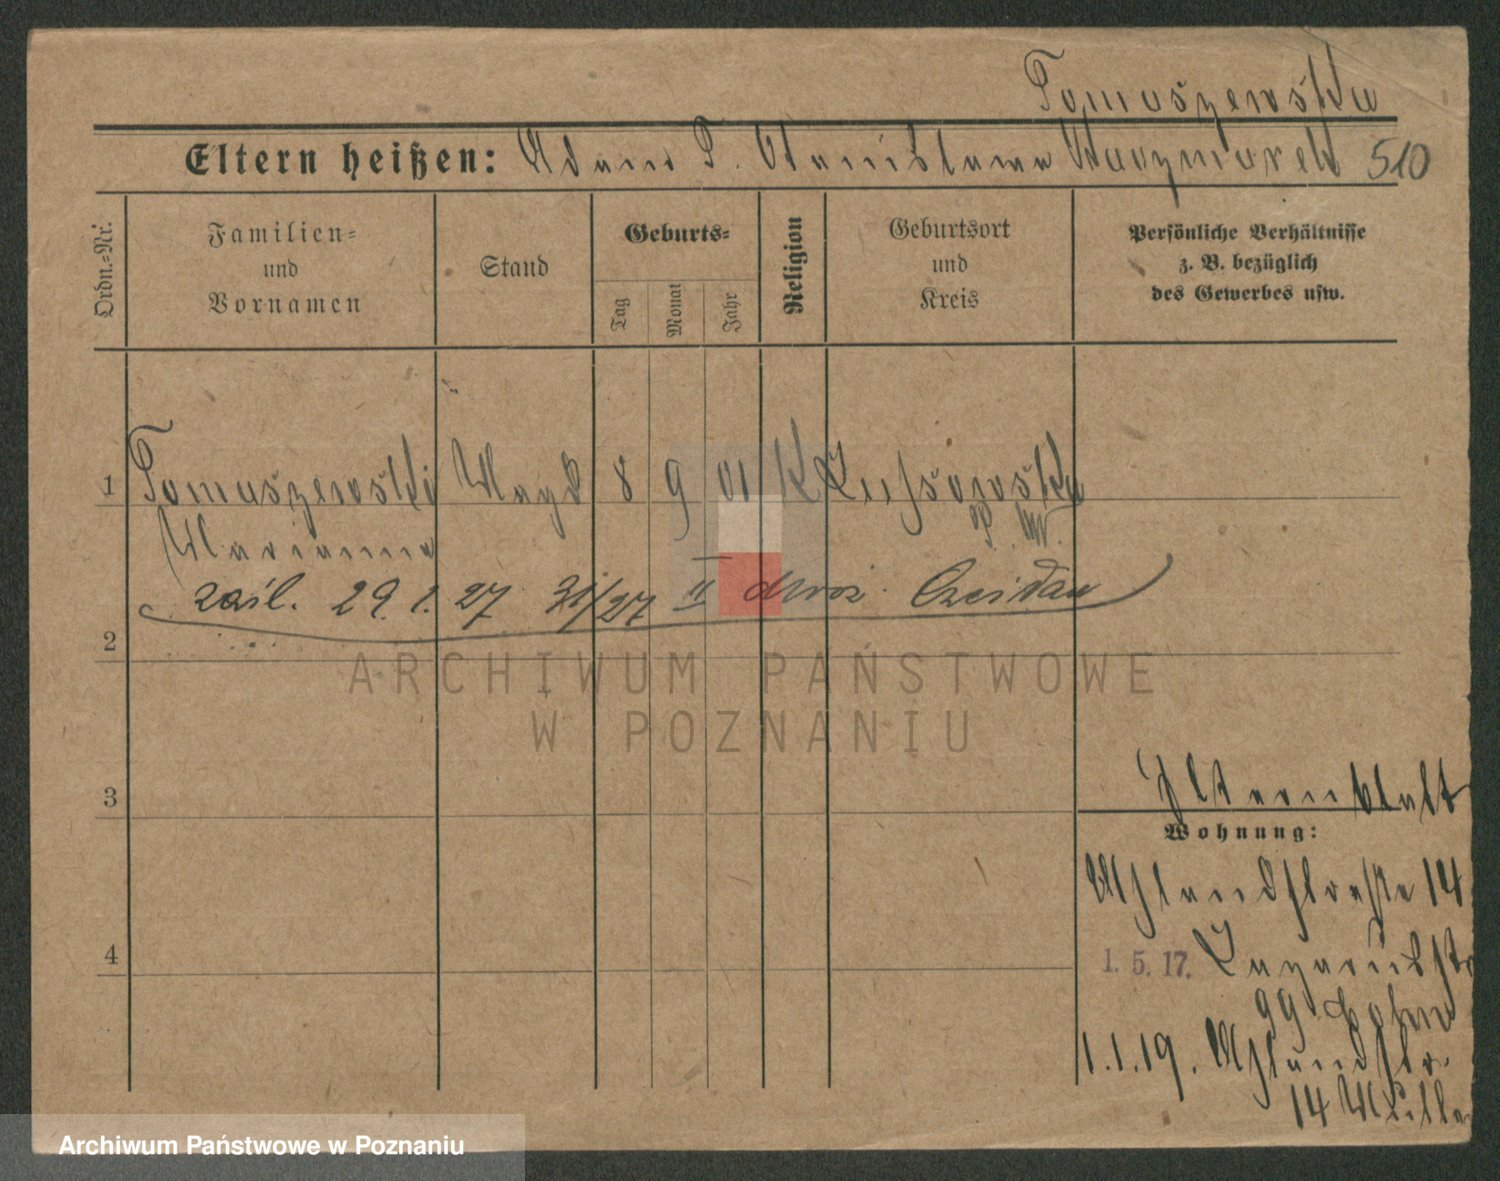 Tomaszewska
Eltern heißen: Adam T. Stanislawa Kaczmarek 510
Ordn.-Nr.
Familien-
und
Vornamen
Stand
Geburts-
Tag
Monat
Jahr
Religion
Geburtsort
und
Kreis
Persönliche Verhältnisse
z. B. bezüglich
des Gewerbes usw.
1 Tomaszewski Magd 8 9 01 K
Marianna
zaśl. 29.1.27 31/27 II
2
3
4
Elternblatt
Wohnung:
Uhlandstraße 14
1. 5. 17. Lazarusstr
1.1.19. Uhlandstr.
14
ARCHIWUM PAŃSTWOWE
W POZNANIU
Archiwum Państwowe w Poznaniu